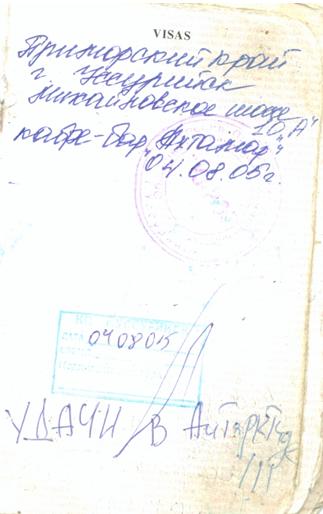 VISAS
Приморский край
г. Уссурийск
Михайловское шоссе
10 "А"
кафе-бар "Ахтамар"
04.08.05г.
ДАТА 040805
УДАЧИ В Антарктиде
!!!